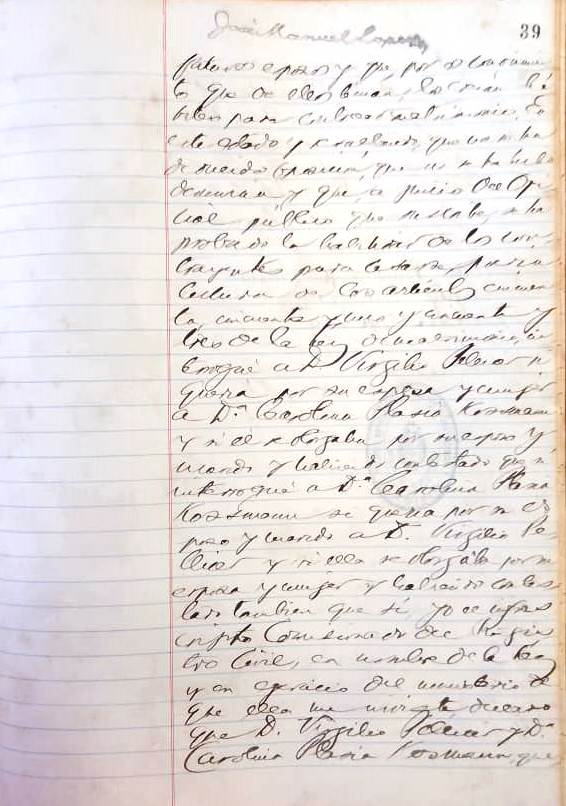 José Manuel Lopez
39
futuros esposos y que por el conocimien
to que de ellos tienen, los creen há
biles para contraer matrimonio. En
este estado y resultando que no se ha
deducido oposicion, que no se ha
denuncia y que, a juicio del Ofi
cial publico que suscribe, se ha
probado la habilidad de los con
trayentes para casarse, previa
lectura de los articulos cincuen
ta, cincuenta y uno y cincuenta y
tres de la ley de matrimonio, in
terrogué a D. Virgilio si
queria por su esposa y mujer
a Dª Carolina Maria Kossmann
y si él se otorgaba por su esposo y
marido y habiendo contestado que sí
interrogué a Dª Carolina Maria
Kossmann si queria por su es
poso y marido a D. Virgilio Pe
llicer y si ella se otorgaba por su
esposa y mujer y habiendo contes
tado tambien que sí, yo el infras
cripto Comisionado del Regis
tro Civil, en nombre de la Ley
y en ejercicio del ministerio de
que ella me inviste declaro
que D. Virgilio y Dª
Carolina Maria Kossmann, que